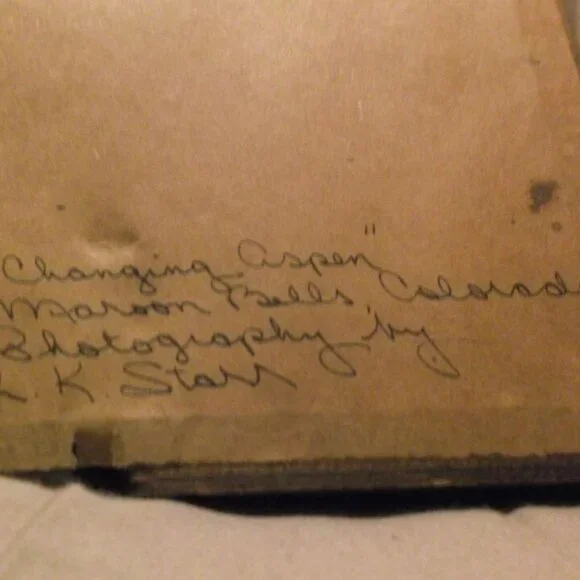 Changing Aspen"
Maroon Bells, Colorad
Photography by
L. K. Starr